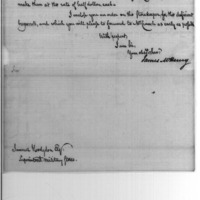 make them at the rate of half dollar each.
I enclose you an order on the Storekeeper for the different
and which you will please to forward to as early as possible
With respect,
I am Sir,
Your obed servt
James McHenry
Samuel Hodgdon Esqr
military stores.